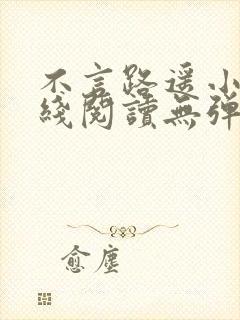 不言路遥小
綫閱讀無彈
愈塵